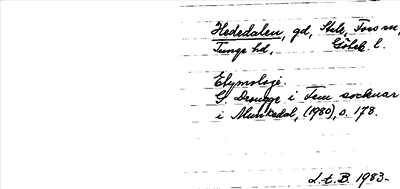 Hededalen, gd, Stele, Foss sn,
Tunge hd, Göteb. l.
Etymologi.
G. Drougge i Fem socknar
i Munkedal, (1980), s. 178.
L.t.B. 1983-